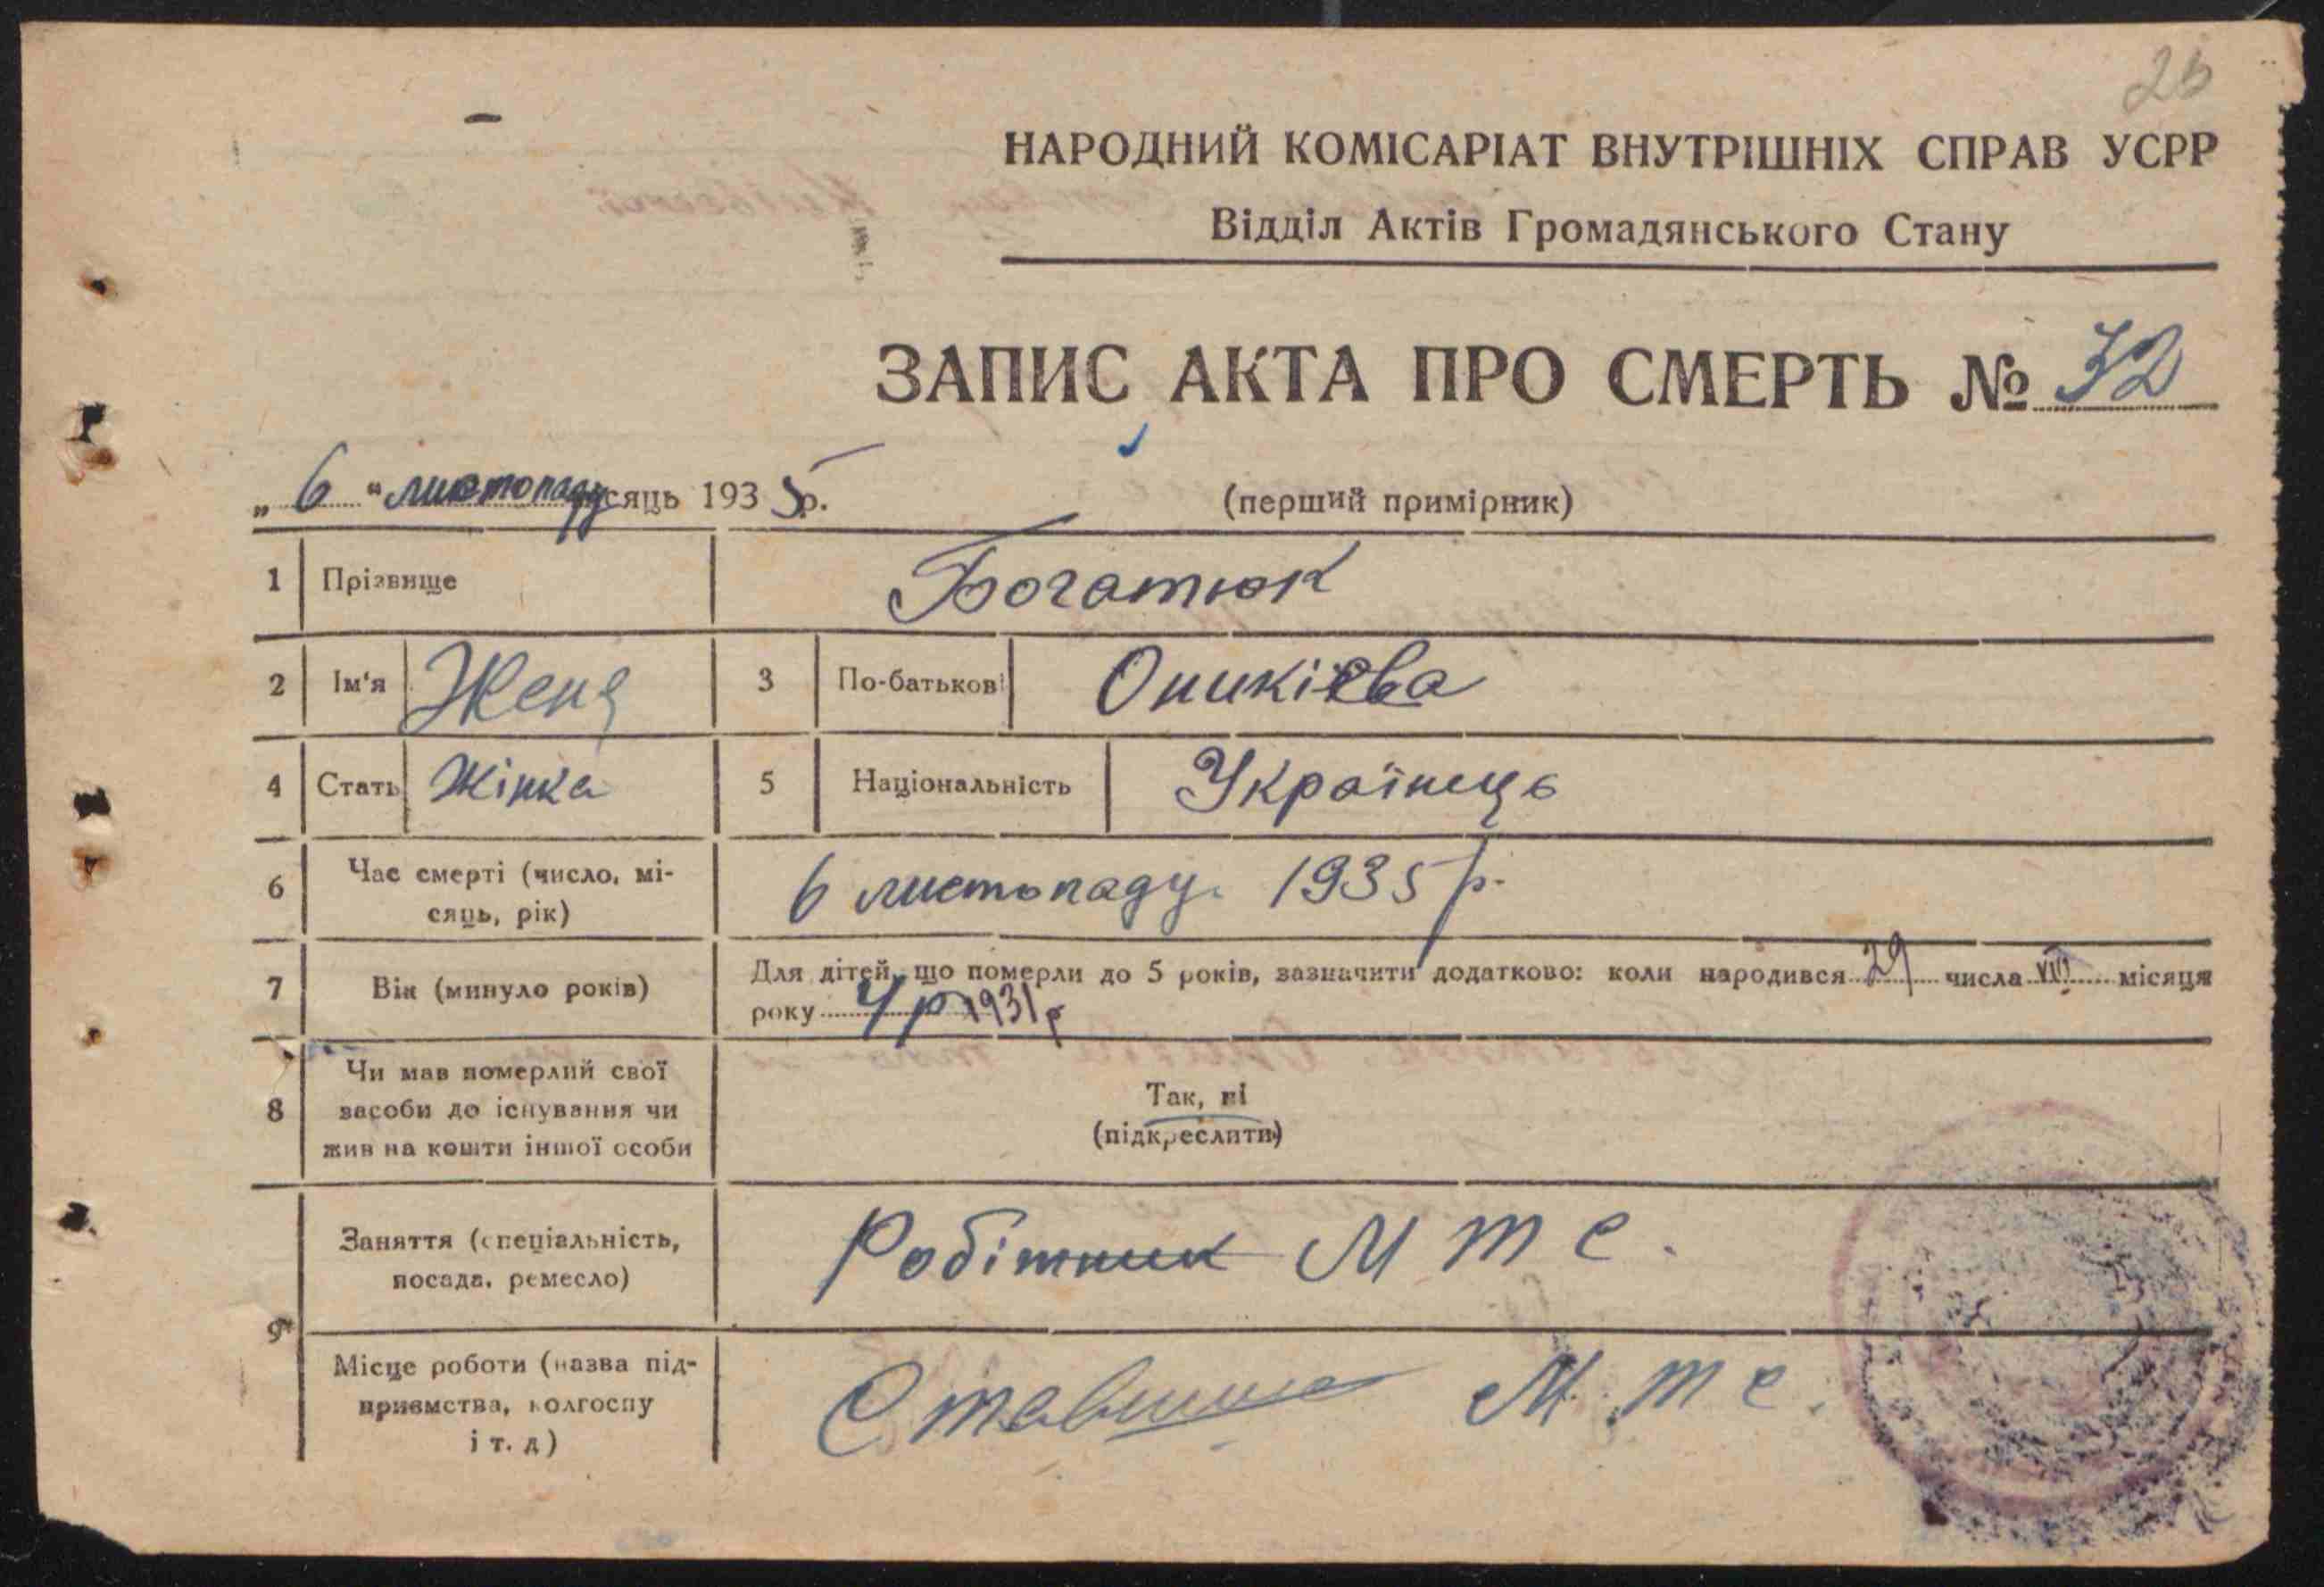 НАРОДНИЙ КОМІСАРІАТ ВНУТРІШНІХ СПРАВ УСРР
Відділ Актів Громадянського Стану
ЗАПИС АКТА ПРО СМЕРТЬ № 32
„ 6 “ листопаду місяць 1935 р.
(перший примірник)
1 Прізвище Богатюк
2 Ім'я Женя 3 По-батькові Оникієва
4 Стать Жінка 5 Національність Українець
6 Час смерті (число, мі-
сяць, рік) 6 листопаду 1935 р.
7 Вік (минуло років) Для дітей, що померли до 5 років, зазначити додатково: коли народився 29 числа VIII місяця
року 4 р 1931 р
8 Чи мав померлий свої
засоби до існування чи
жив на кошти іншої особи
Так, ні
(підкреслити)
9 Заняття (спеціальність,
посада, ремесло) Робітник М Т С.
Місце роботи (назва під-
приємства, колгоспу
і т. д) Ставище М. Т С.